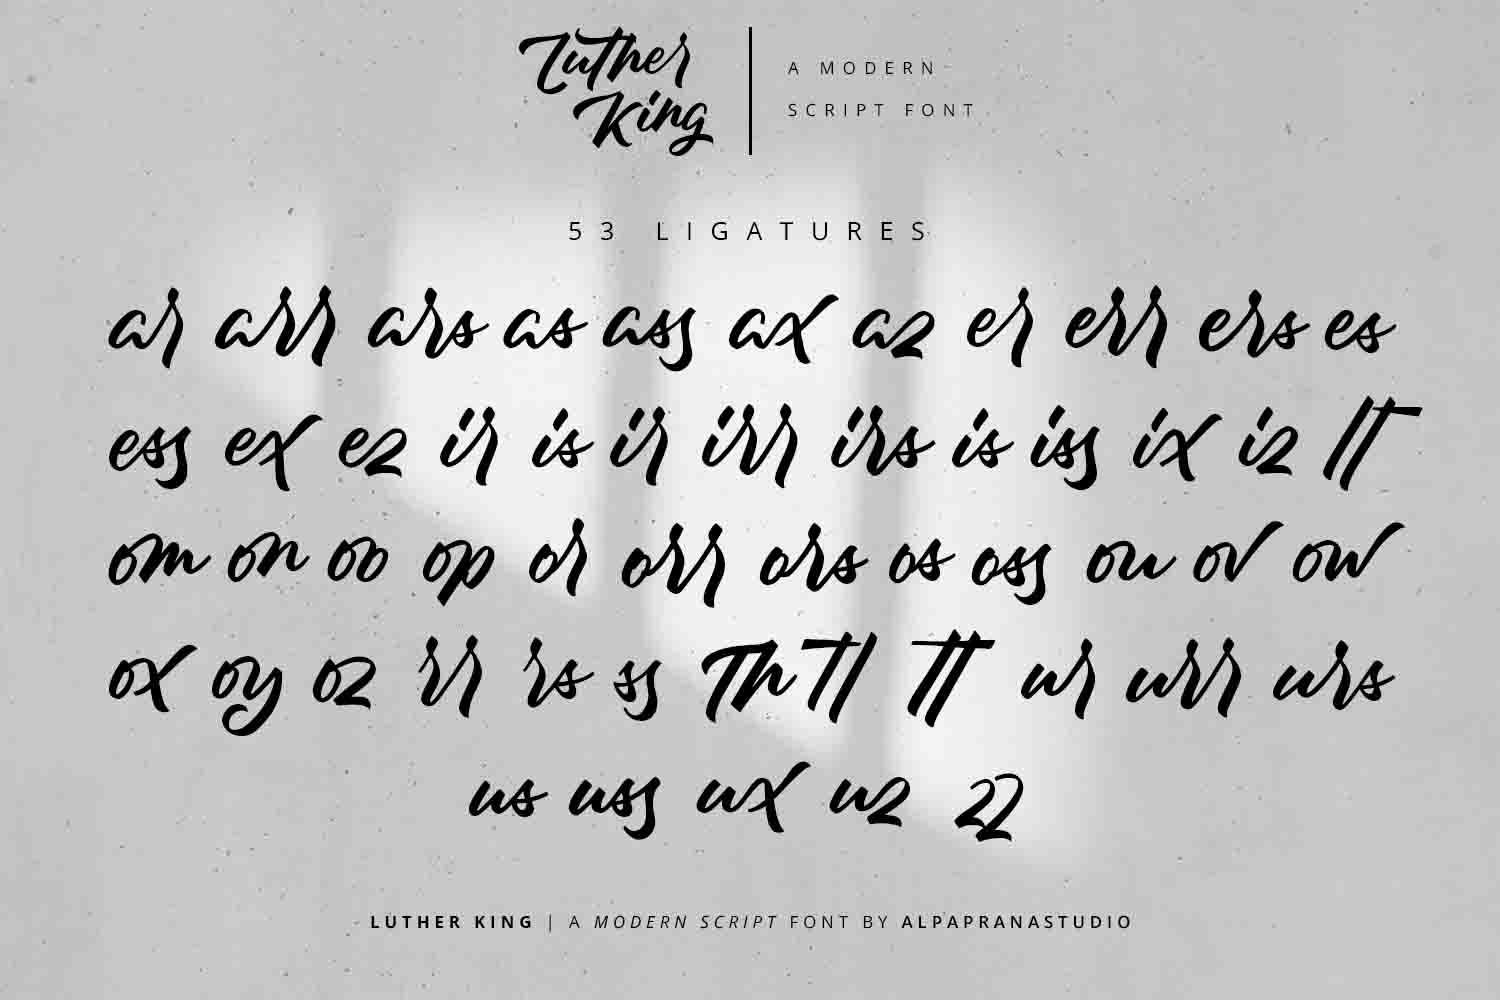 Luther
King
A MODERN
SCRIPT FONT
53 LIGATURES
ar arr ars as ass ax az er err ers es
ess ex ez ir is ir irr irs is iss ix iz lt
om on oo op or orr ors os oss ou ov ow
ox oy oz rr rs ss Th tl tt ur urr urs
us uss ux uz zz
LUTHER KING | A MODERN SCRIPT FONT BY ALPAPRANASTUDIO